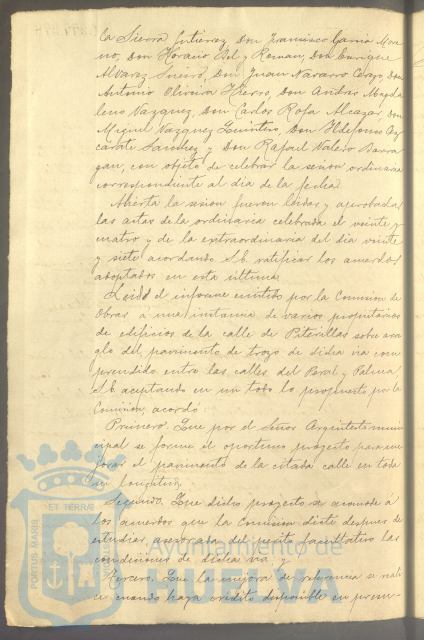 la Sierra Gutierrez, Don Francisco Garcia More
no, Don Horacio Bel y Roman, Don Enrique
Alvarez Don Juan Navarro Cerezo, Don
Antonio Oliveira Hierro, Don Andres Magda
leno Vazquez, Don Carlos Rofa Alcazar, Don
Miguel Vazquez Quintino, Don Ildefonso Az
carate Sanchez y Don Rafael Valero Barra
gan, con objeto de celebrar la sesion ordinaria
correspondiente al dia de la fecha.
Abierta la sesion fueron leidas y aprobadas
las actas de la ordinaria celebrada el veinte y
cuatro y de la extraordinaria del dia veinte
y siete acordando S.E. ratificar los acuerdos
adoptados en esta ultima.
Leido el informe emitido por la Comision de
Obras á una instancia de varios propietarios
de edificios de la calle de Puterillas sobre arre
glo del pavimento de trozo de dicha via com
prendido entre las calles del Peral y Palma
S.E. aceptando en un todo lo propuesto por la
Comision, acordó
Primero. Que por el Señor Arquitecto muni
cipal se forme el oportuno proyecto para me
jorar el pavimento de la citada calle en toda
su longitud.
Segundo. Que dicho proyecto se acomode á
los acuerdos que la Comision dicte despues de
estudiar, asesorada del perito facultativo las
condiciones de dicha via y
Tercero. Que la mejora de referencia se reali
ce cuando haya crédito disponible en presu-
PORTUS MARIS
ET TERRAE
Ayuntamiento de
HUELVA